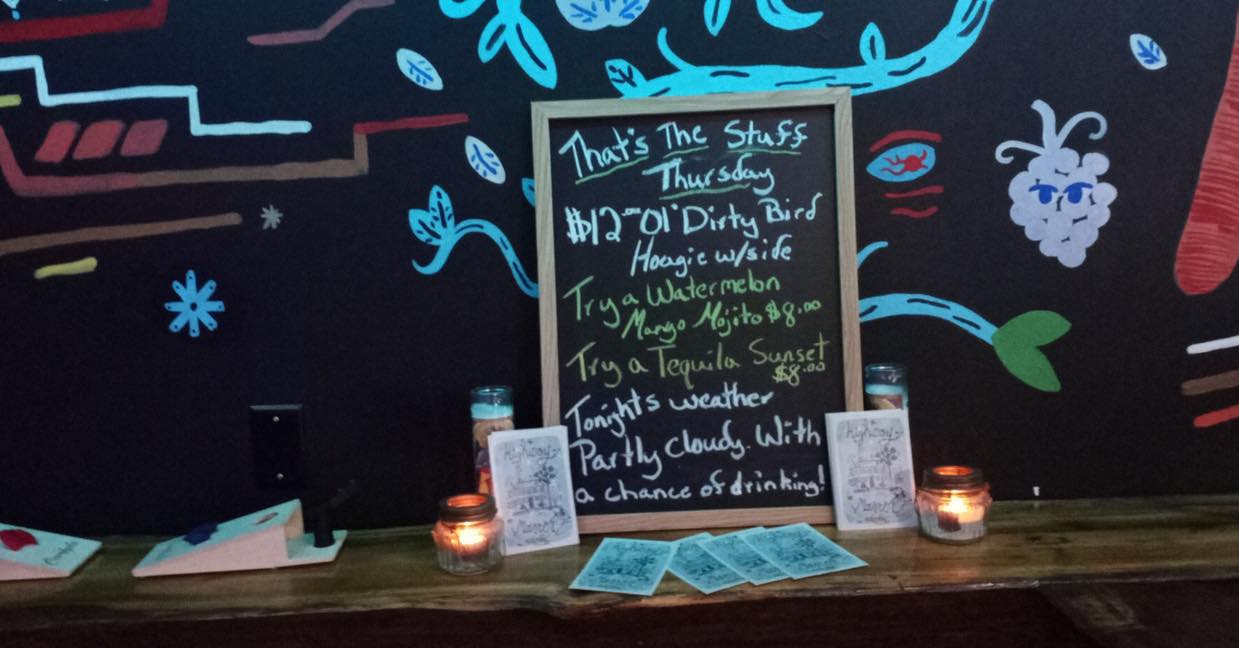 That's The Stuff
Thursday
$12⁰⁰ Ol' Dirty Bird
Hoagie w/side
Try a Watermelon
Mango Mojito $8.00
Try a Tequila Sunset
$8.00
Tonights weather
Partly Cloudy. With
a chance of drinking!
Highway
Manor
Highway
Manor